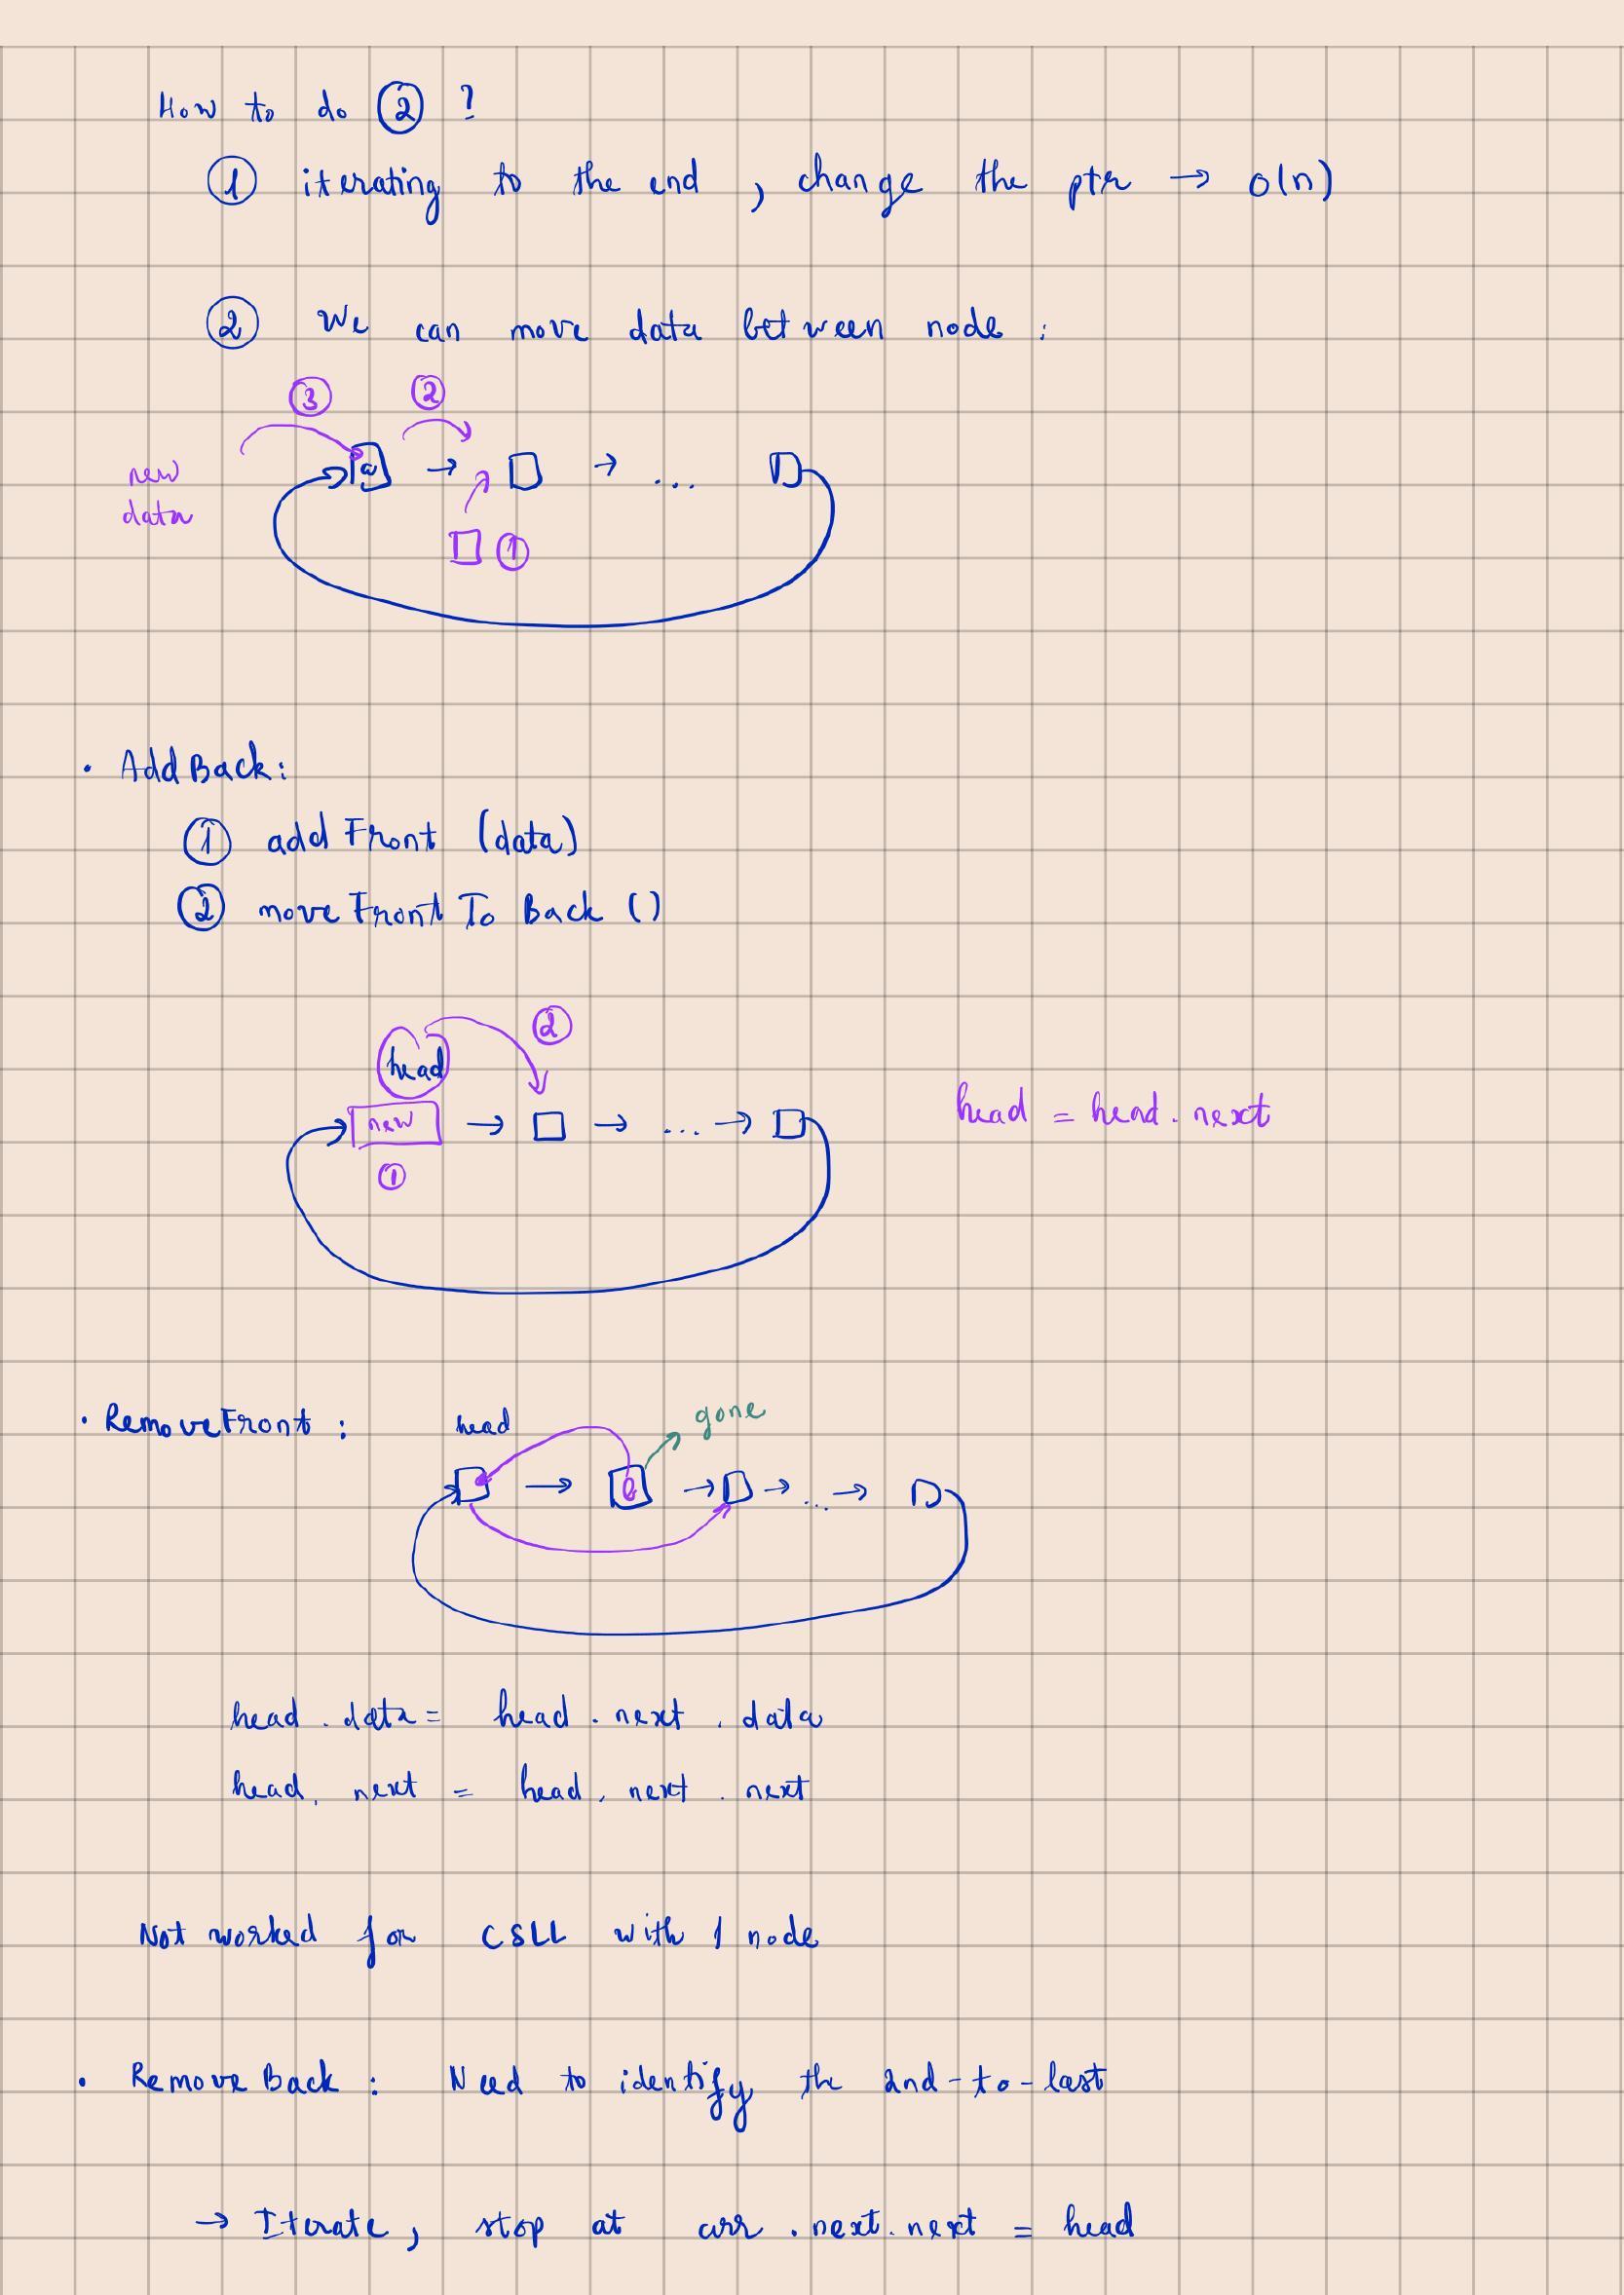 How to do ② ?
① iterating to the end , change the ptr → O(n)
② We can move data between node :
③ ②
a → → ...
new
data
①
• AddBack:
① addFront (data)
② moveFrontToBack ()
②
head
new → → ... →
head = head.next
①
• RemoveFront : head gone
→ → → ... →
head.data = head.next.data
head.next = head.next.next
Not worked for CSLL with 1 node
• RemoveBack : Need to identify the 2nd-to-last
→ Iterate, stop at curr.next.next = head